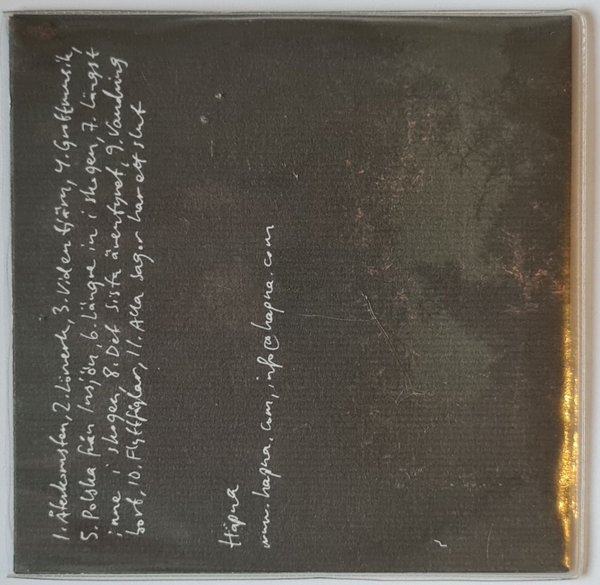 1. Återkomsten, 2. Lövverk, 3. Videntjärn, 4. Grottmusik,
5. Polska från Insjön, 6. Längre in i skogen, 7. Längst
inne i skogen, 8. Det sista äventyret, 9. Vandring
bort, 10. Flyttfåglar, 11. Alla sagor har ett slut
Häpna
www.hapna.com, info@hapna.com